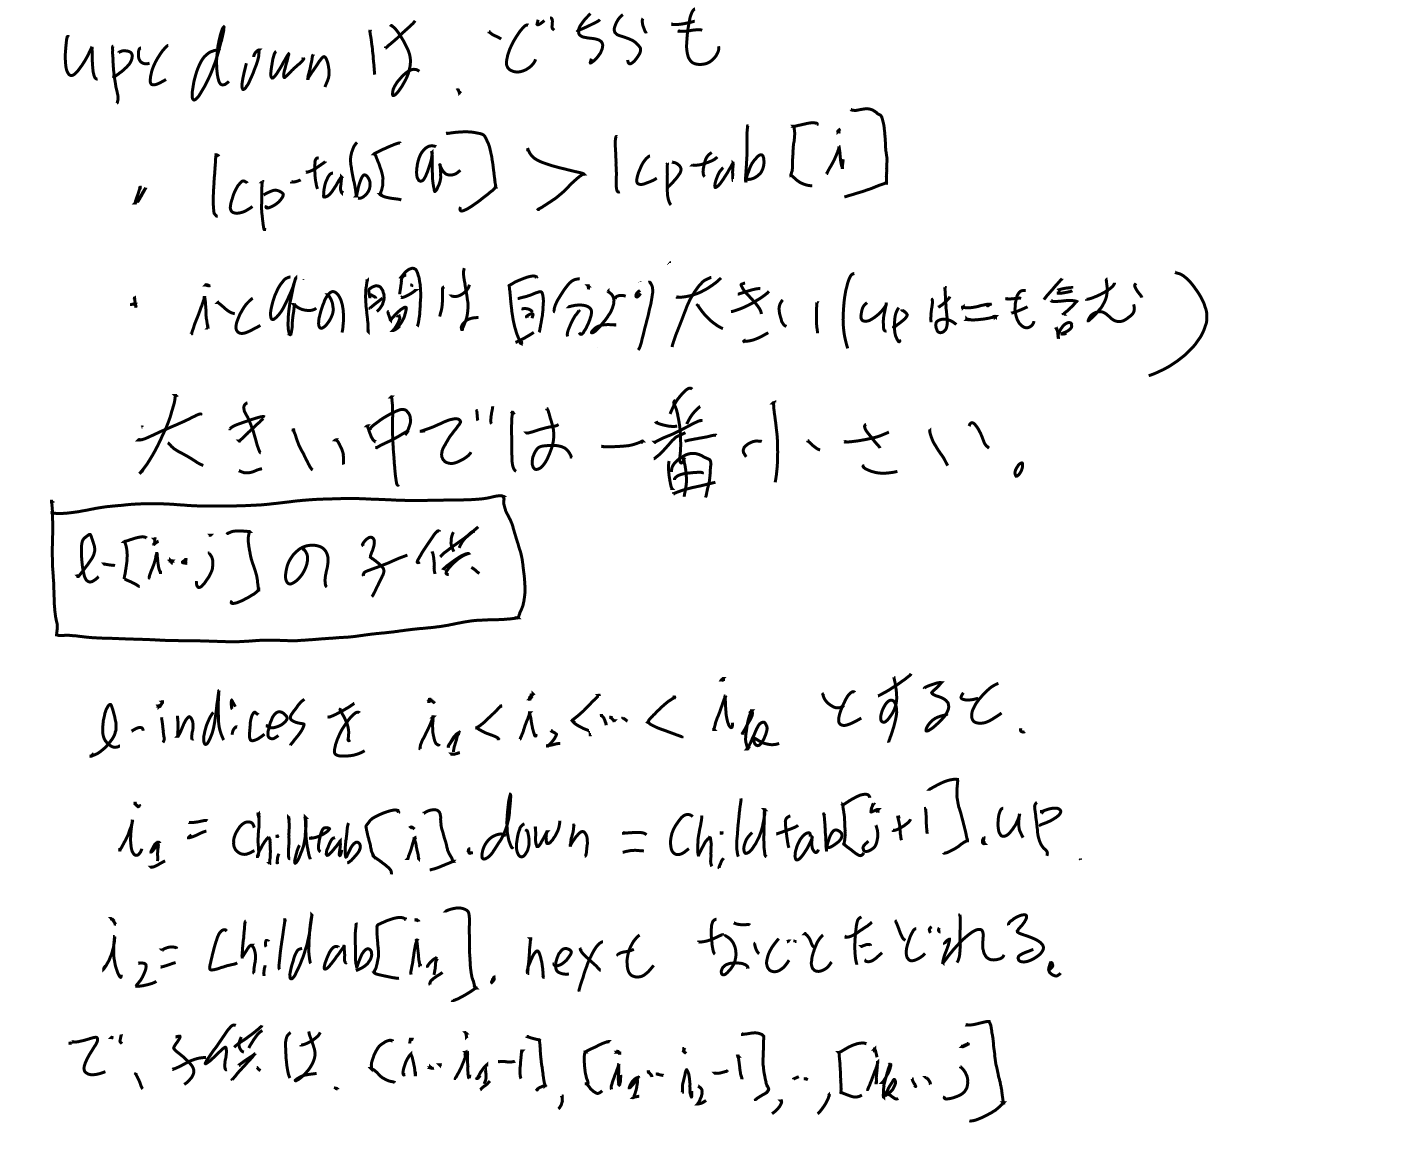 upとdownは、どちらも
・lcp-tab[q] > lcptab[i]
・iとqの間は自分より大きい(upは=も含む)
大きい中では一番小さい。
l-[i..j]の子供
l-indicesを i1<i2<…< ik とすると、
i1 = childtab[i].down = childtab[j+1].up.
i2 = childab[i1].next などとたどれる。
で、子供は、[i..i1-1], [i1..i2-1], .., [ik..j]